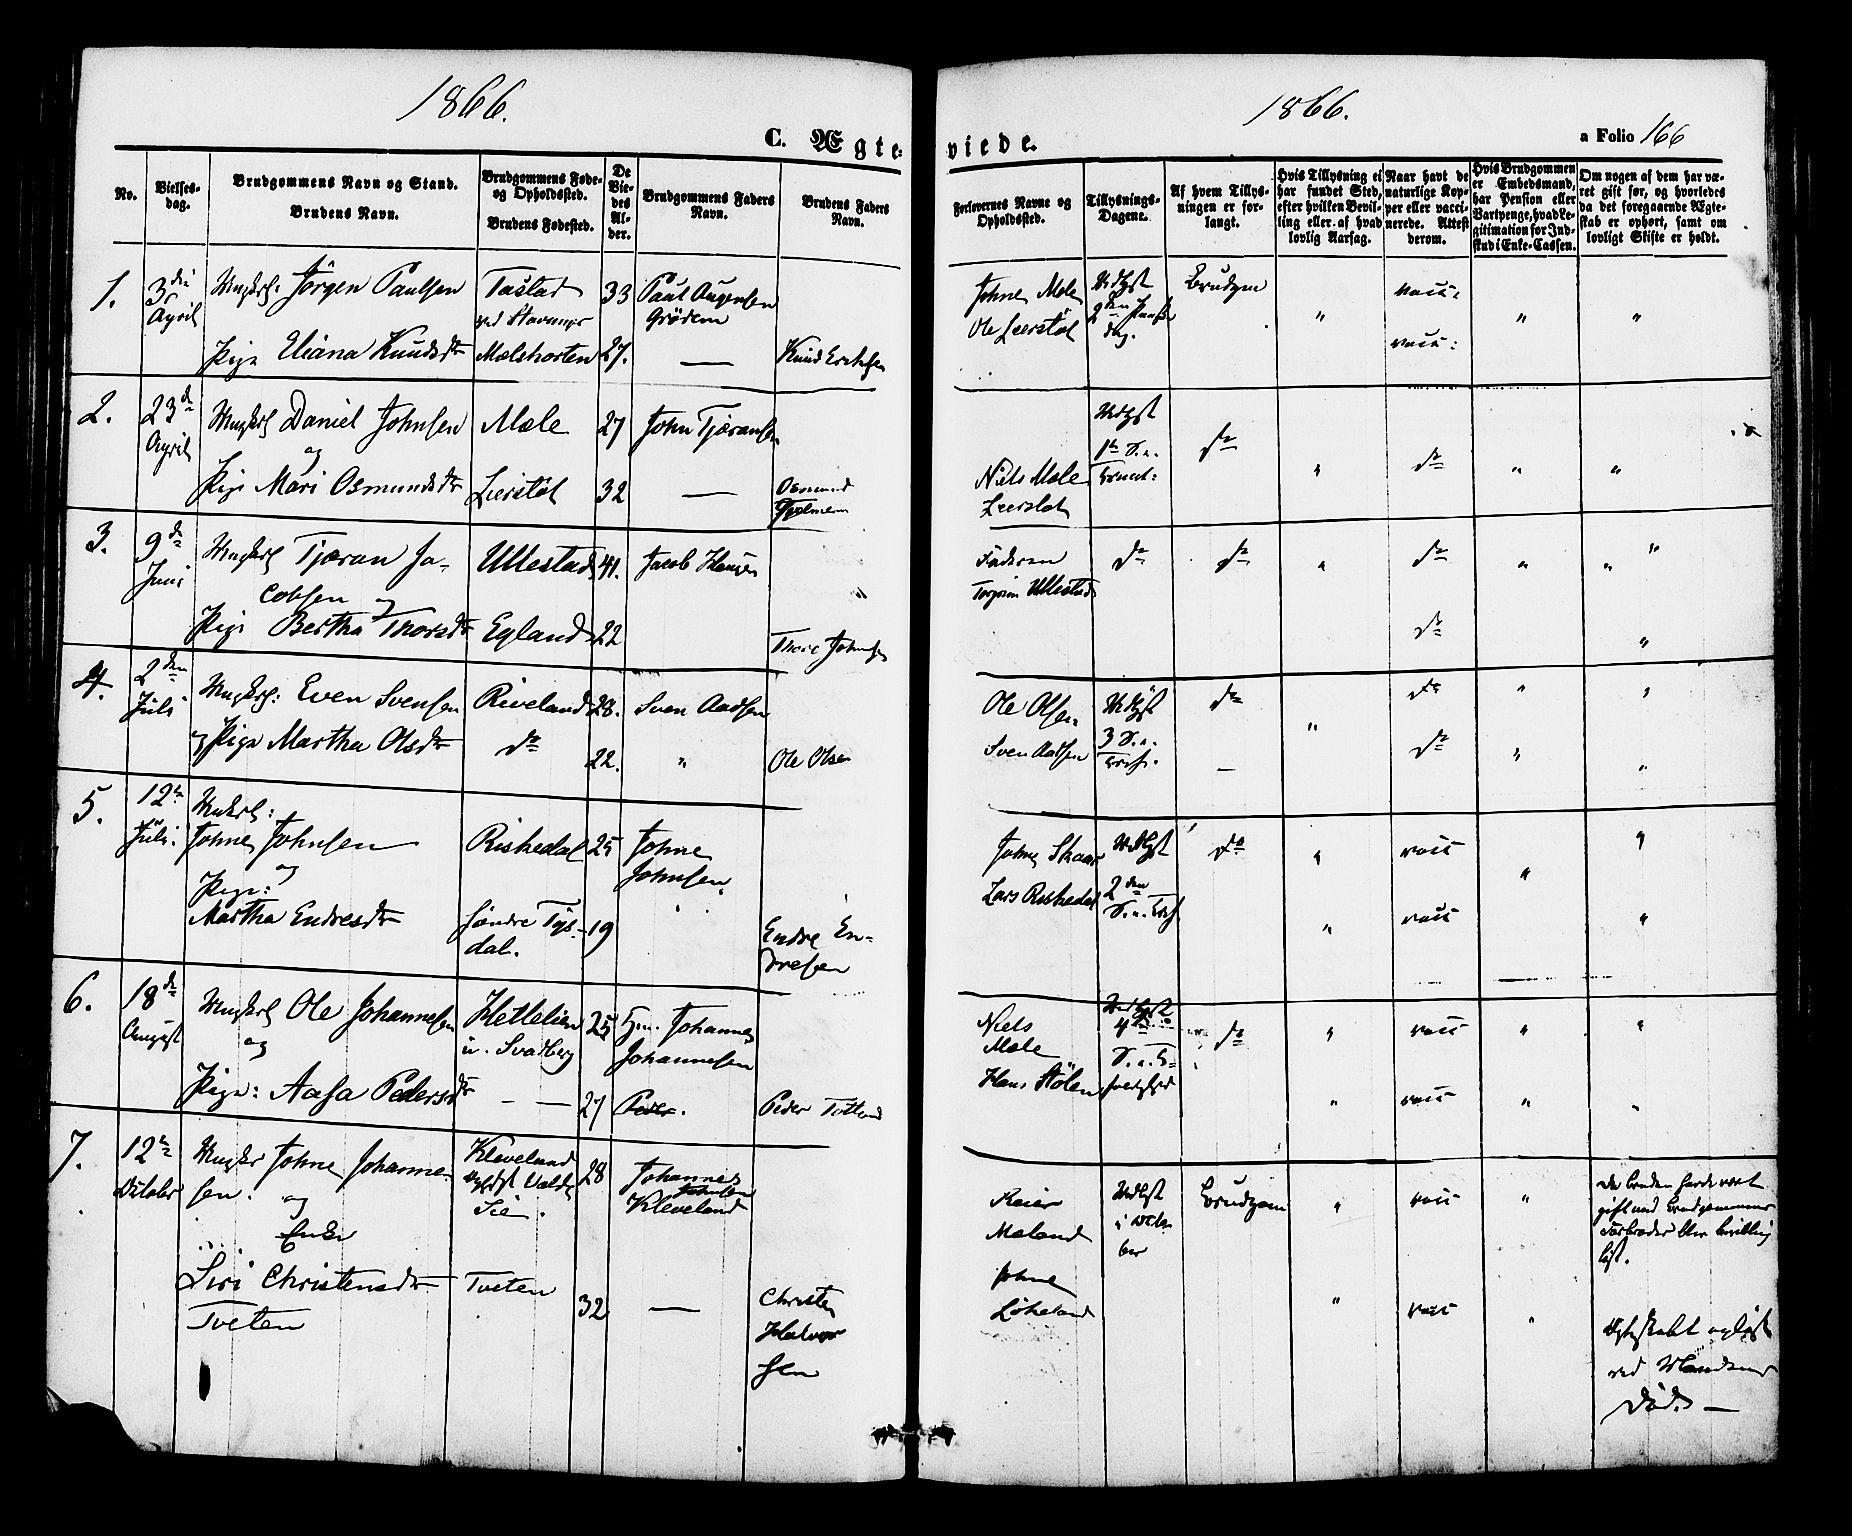 1866.
C. Ægte-
No.
Vielses-
dag.
Brudgommens Navn og Stand.
Brudens Navn.
Brudgommens Føde-
og Opholdssted.
Brudens Fødested.
De
Vie-
des
Al-
der.
Brudgommens Faders
Navn.
Brudens Faders
Navn.
1.
3die
April
Ungkrl: Jörgen Paulsen
Tastad
ved Stavanger
33
Paul Augensen
Grödem
Pige Eliana Knudsdtr
Mælshorten
27.
—
Knud Erichsen
2.
23de
April
Ungkrl Daniel Johnsen
og
Mæle
27
John Tjæransen
Pige Mari Osmundsdtr
Leerstöl
32
—
Osmund
3.
9de
Juni
Ungkrl Tjæran Ja-
cobsen og
Ullestad
41.
Jacob Hansen
Pige Bertha Thorsdtr
Egland
22
Thore Johnsen
4.
2den
Juli
Ungkrl: Even Svensen
Riveland
28.
Sven Aadsen
og Pige Martha Olsdtr
do
22.
"
Ole Olsen
5.
12te
Juli.
Ungkrl:
Johne Johnsen
og
Riskedal
25
Johne
Johnsen.
Pige:
Martha Endresdtr
Søndre Tys-
dal.
19
Endre En-
dresen
6.
18de
August
Ungkrl Ole Johannesen
og
Hettelien
i Svadberg
25
Hm. Johannes
Johannesen
Pige: Aasa Pedersdtr
— —
27
Peder.
Peder Totland
7.
12te
Octobr
Ungkr Johne Johanne-
sen.
og
Enke
Kleveland
28
Johannes
Johnsen
Kleveland
Siri Christensdtr
Tveten
Tveten
32
—
Christen
Halvor
sen
1866.
viede.
a Folio 166
Forlovernes Navne og
Opholdssted.
Tillysnings-
Dagene.
Af hvem Tillys-
ningen er for-
langt.
Hvis Tillysning ei
har fundet Sted,
efter hvilken Bevil-
ling eller af hvad
lovlig Aarsag.
Naar havt de
naturlige Kop-
per eller vacci-
nerede. Attest
derom.
Hvis Brudgommen
er Embedsmand,
har Pension eller
Vartpenge, hvad Le-
gitimation for Ind-
skud i Enke-Cassen.
Om nogen af dem har væ-
ret gift før, og hvorledes
da det foregaaende Ægte-
skab er ophørt, samt om
lovligt Skifte er holdt.
Johne Mæle
Ole Leerstöl
Udlyst
dag.
Brudgm
"
vacc.
vacc:
"
"
Niels Mæle
Leerstöl
Udlyst
do
"
do
"
"
Faderen
Torgrim Ullestad
do
do
"
do
do
"
"
"
Ole Olsen
Sven Aadsen
Udlyst
do
—
"
do
do
"
"
"
"
Johne Skaar
Lars Riskedal
Udlyst
2den
do
"
"
vacc
vacc
"
"
"
Niels
Mæle
Hans Stölen
Udlyst
do
"
"
vacc
vacc
"
"
"
"
Reier
Mæland
Johne
Lökeland
Udlyst
i Octo-
ber
Brudgom
"
"
vacc
vacc
"
"
Da Bruden havde vært
gift med Brudgommens
Farbroder blev bevilling
löst.
Ægteskabet oplöst
ved Mandens
Död. —